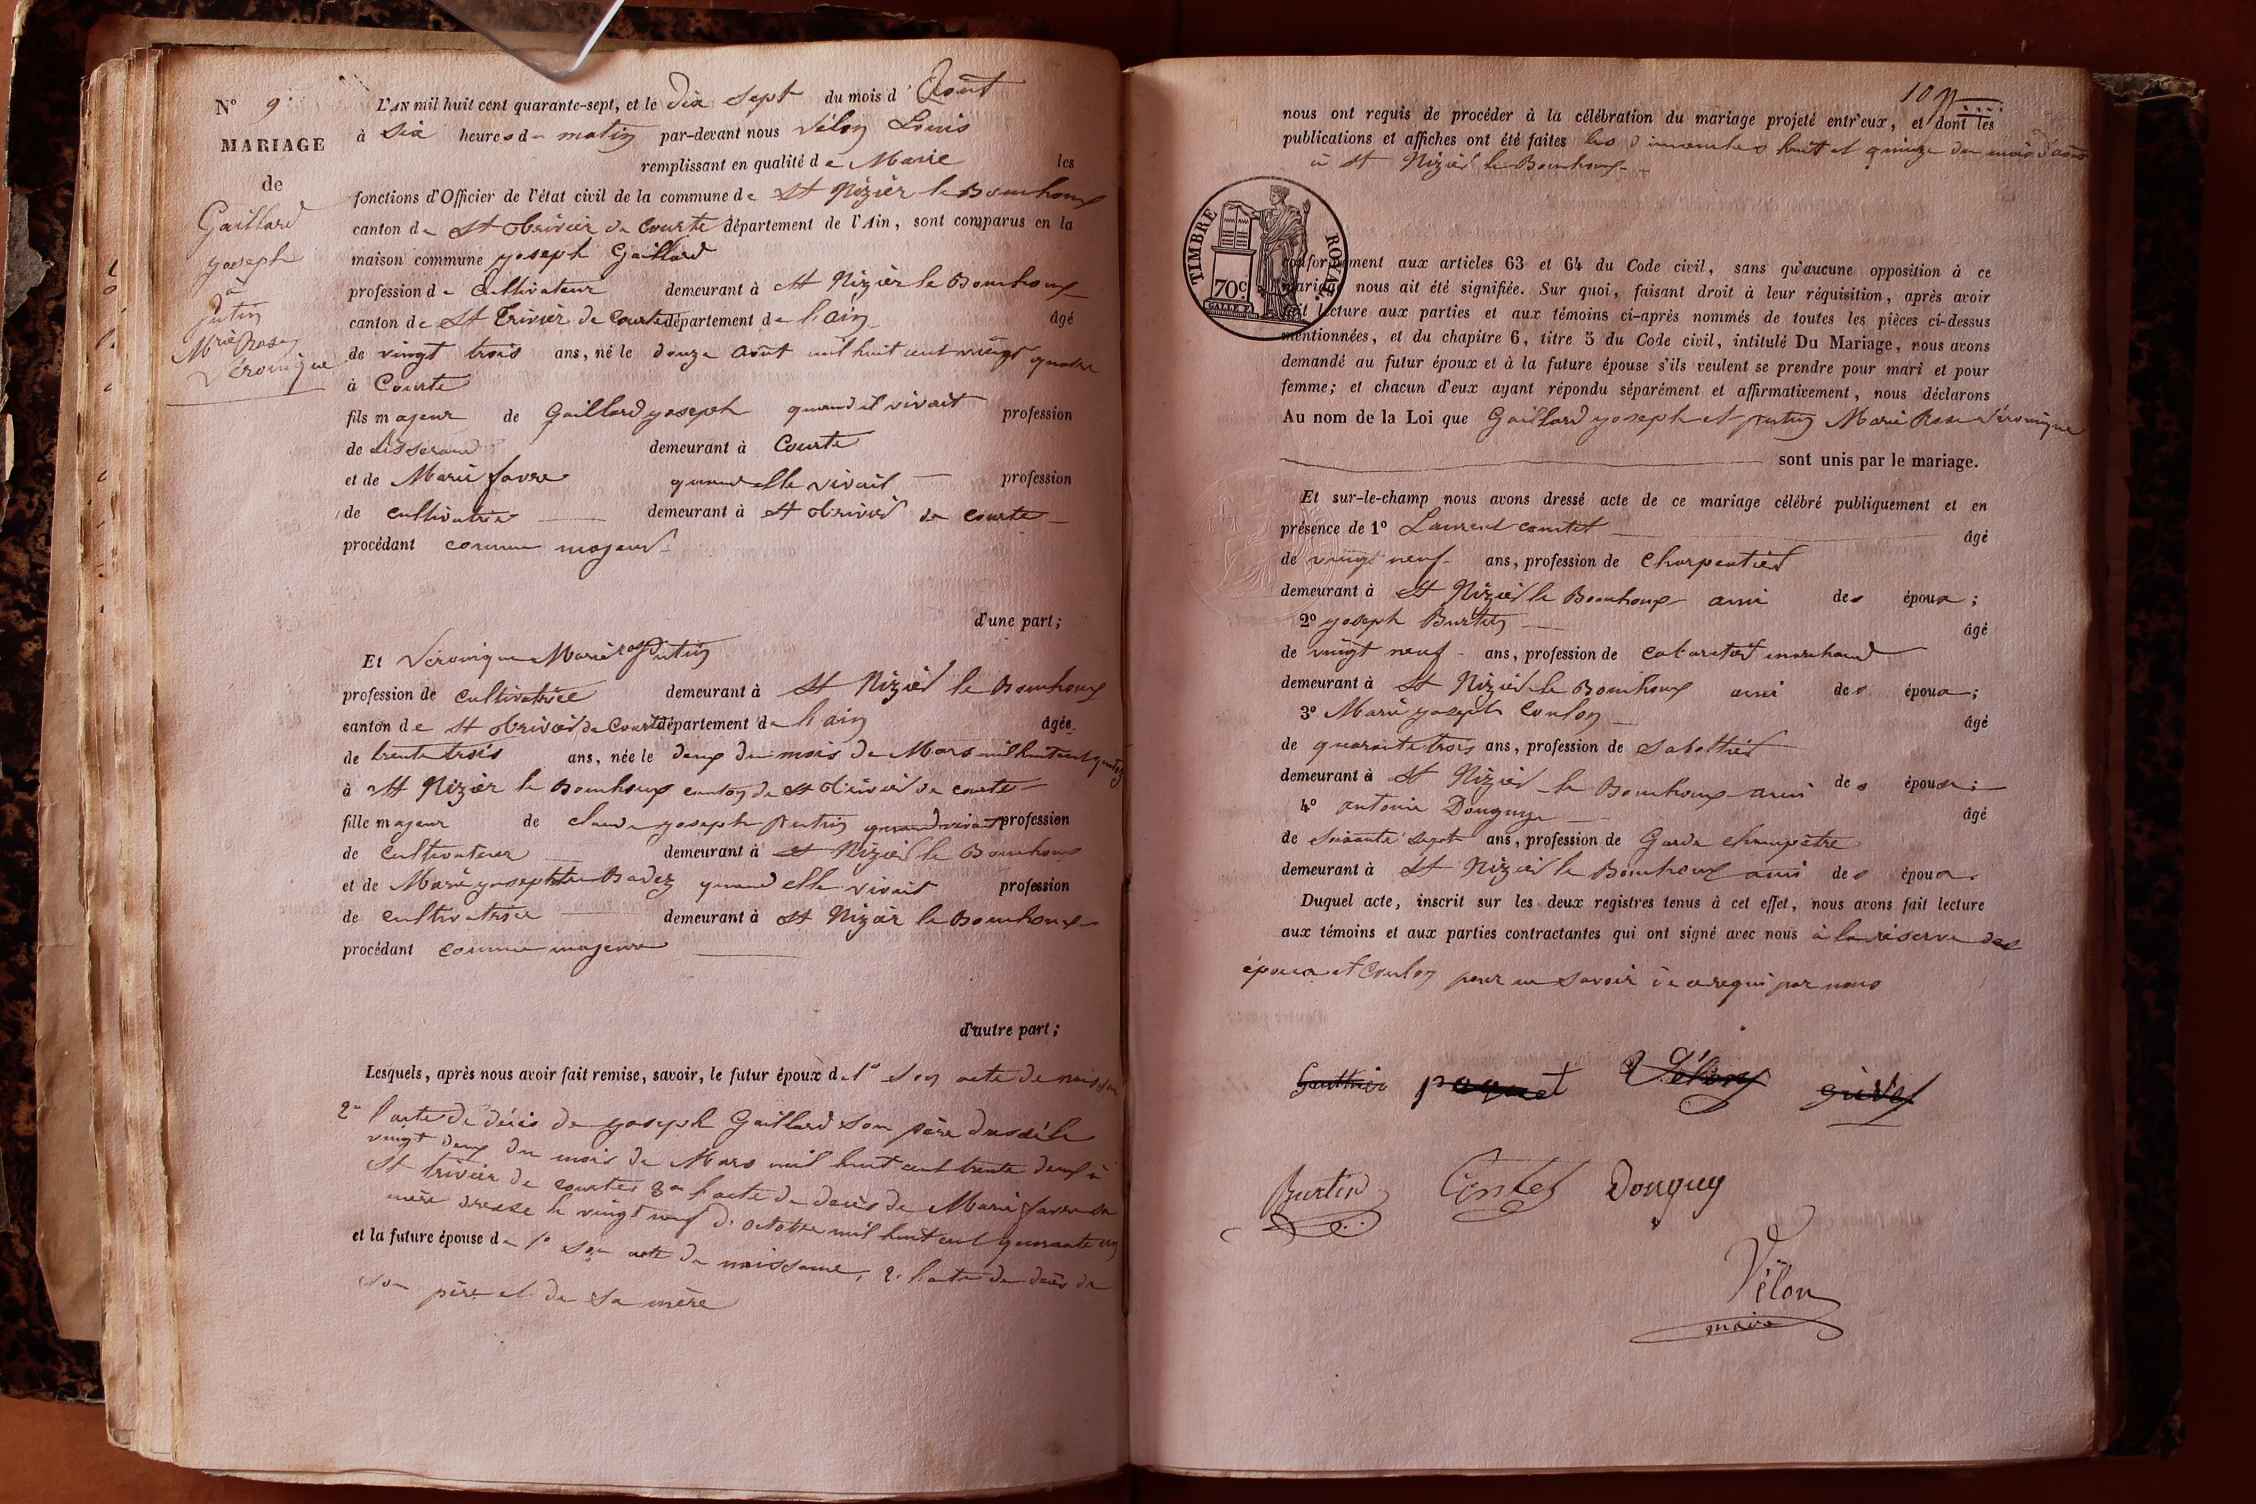 N° 9
MARIAGE
de
Gaillard
joseph
à
putin
Mrie Rose
Véronique
L'AN mil huit cent quarante-sept, et le dix sept du mois d'Août
à six heures de matin par-devant nous Vélon Louis
remplissant en qualité de Marie les
fonctions d'Officier de l'état civil de la commune de St Nizier le Bouchoux
canton de St Trivier de Courte département de l'Ain, sont comparus en la
maison commune joseph Gaillard
profession de Cultivateur demeurant à St Nizier le Bouchoux
canton de St Trivier de Courte département de l'ain âgé
de vingt trois ans, né le douze Août mil huit cent vingt quatre
à Courte
fils majeur de Gaillard joseph quand il vivait profession
de tisserand demeurant à Courte
et de Marie favre quand elle vivait profession
de cultivatrice demeurant à St Trivier de Courte
procédant comme majeur
d'une part;
Et Véronique Marie rose Putin
profession de cultivatrice demeurant à St Nizier le Bouchoux
canton de St Trivier de Courte département de l'ain âgée
de trente trois ans, née le deux du mois de Mars mil huit cent
à St Nizier le Bouchoux canton de St Trivier de Courte
fille majeur de claude joseph putin quand vivait profession
de cultivateur demeurant à St Nizier le Bouchoux
et de Marie josephte Badez quand elle vivait profession
de cultivatrice demeurant à St Nizier le Bouchoux
procédant comme majeure
d'autre part;
Lesquels, après nous avoir fait remise, savoir, le futur époux de 1° son acte de
2° l'acte de décès de joseph Gaillard son père le
vingt deux du mois de Mars mil huit cent trente deux à
St trivier de courtes 3° l'acte de décès de Marie favre sa
mère dresse le vingt neuf d'octobre mil huit cent quarante un
et la future épouse de 1° son acte de naissance, 2° l'acte de décès de
son père et de sa mère
nous ont requis de procéder à la célébration du mariage projeté entr'eux, et dont les
publications et affiches ont été faites les dimanches huit et quinze du mois d'août
à St Nizier le Bouchoux
TIMBRE ROYAL
70c
conformément aux articles 63 et 64 du Code civil, sans qu'aucune opposition à ce
mariage nous ait été signifiée. Sur quoi, faisant droit à leur réquisition, après avoir
fait lecture aux parties et aux témoins ci-après nommés de toutes les pièces ci-dessus
mentionnées, et du chapitre 6, titre 5 du Code civil, intitulé Du Mariage, nous avons
demandé au futur époux et à la future épouse s'ils veulent se prendre pour mari et pour
femme; et chacun d'eux ayant répondu séparément et affirmativement, nous déclarons
Au nom de la Loi que Gaillard joseph et putin Marie Rose Véronique
sont unis par le mariage.
Et sur-le-champ nous avons dressé acte de ce mariage célébré publiquement et en
présence de 1° Laurent comtet âgé
de vingt neuf ans, profession de charpentier
demeurant à St Nizier le Bouchoux ami des époux;
2° joseph Burtin âgé
de vingt neuf ans, profession de cabaretier marchand
demeurant à St Nizier le Bouchoux ami des époux;
3° Marie joseph Coulon âgé
de quarante trois ans, profession de sabottier
demeurant à St Nizier le Bouchoux ami des époux;
4° antoine Donguy âgé
de soixante sept ans, profession de Garde champêtre
demeurant à St Nizier le Bouchoux ami des époux.
Duquel acte, inscrit sur les deux registres tenus à cet effet, nous avons fait lecture
aux témoins et aux parties contractantes qui ont signé avec nous à la réserve des
époux et Coulon pour ne savoir de ce requi par nous
Gauthier paquet Vélon
Burtin Comtet Donguy
Vélon
maire